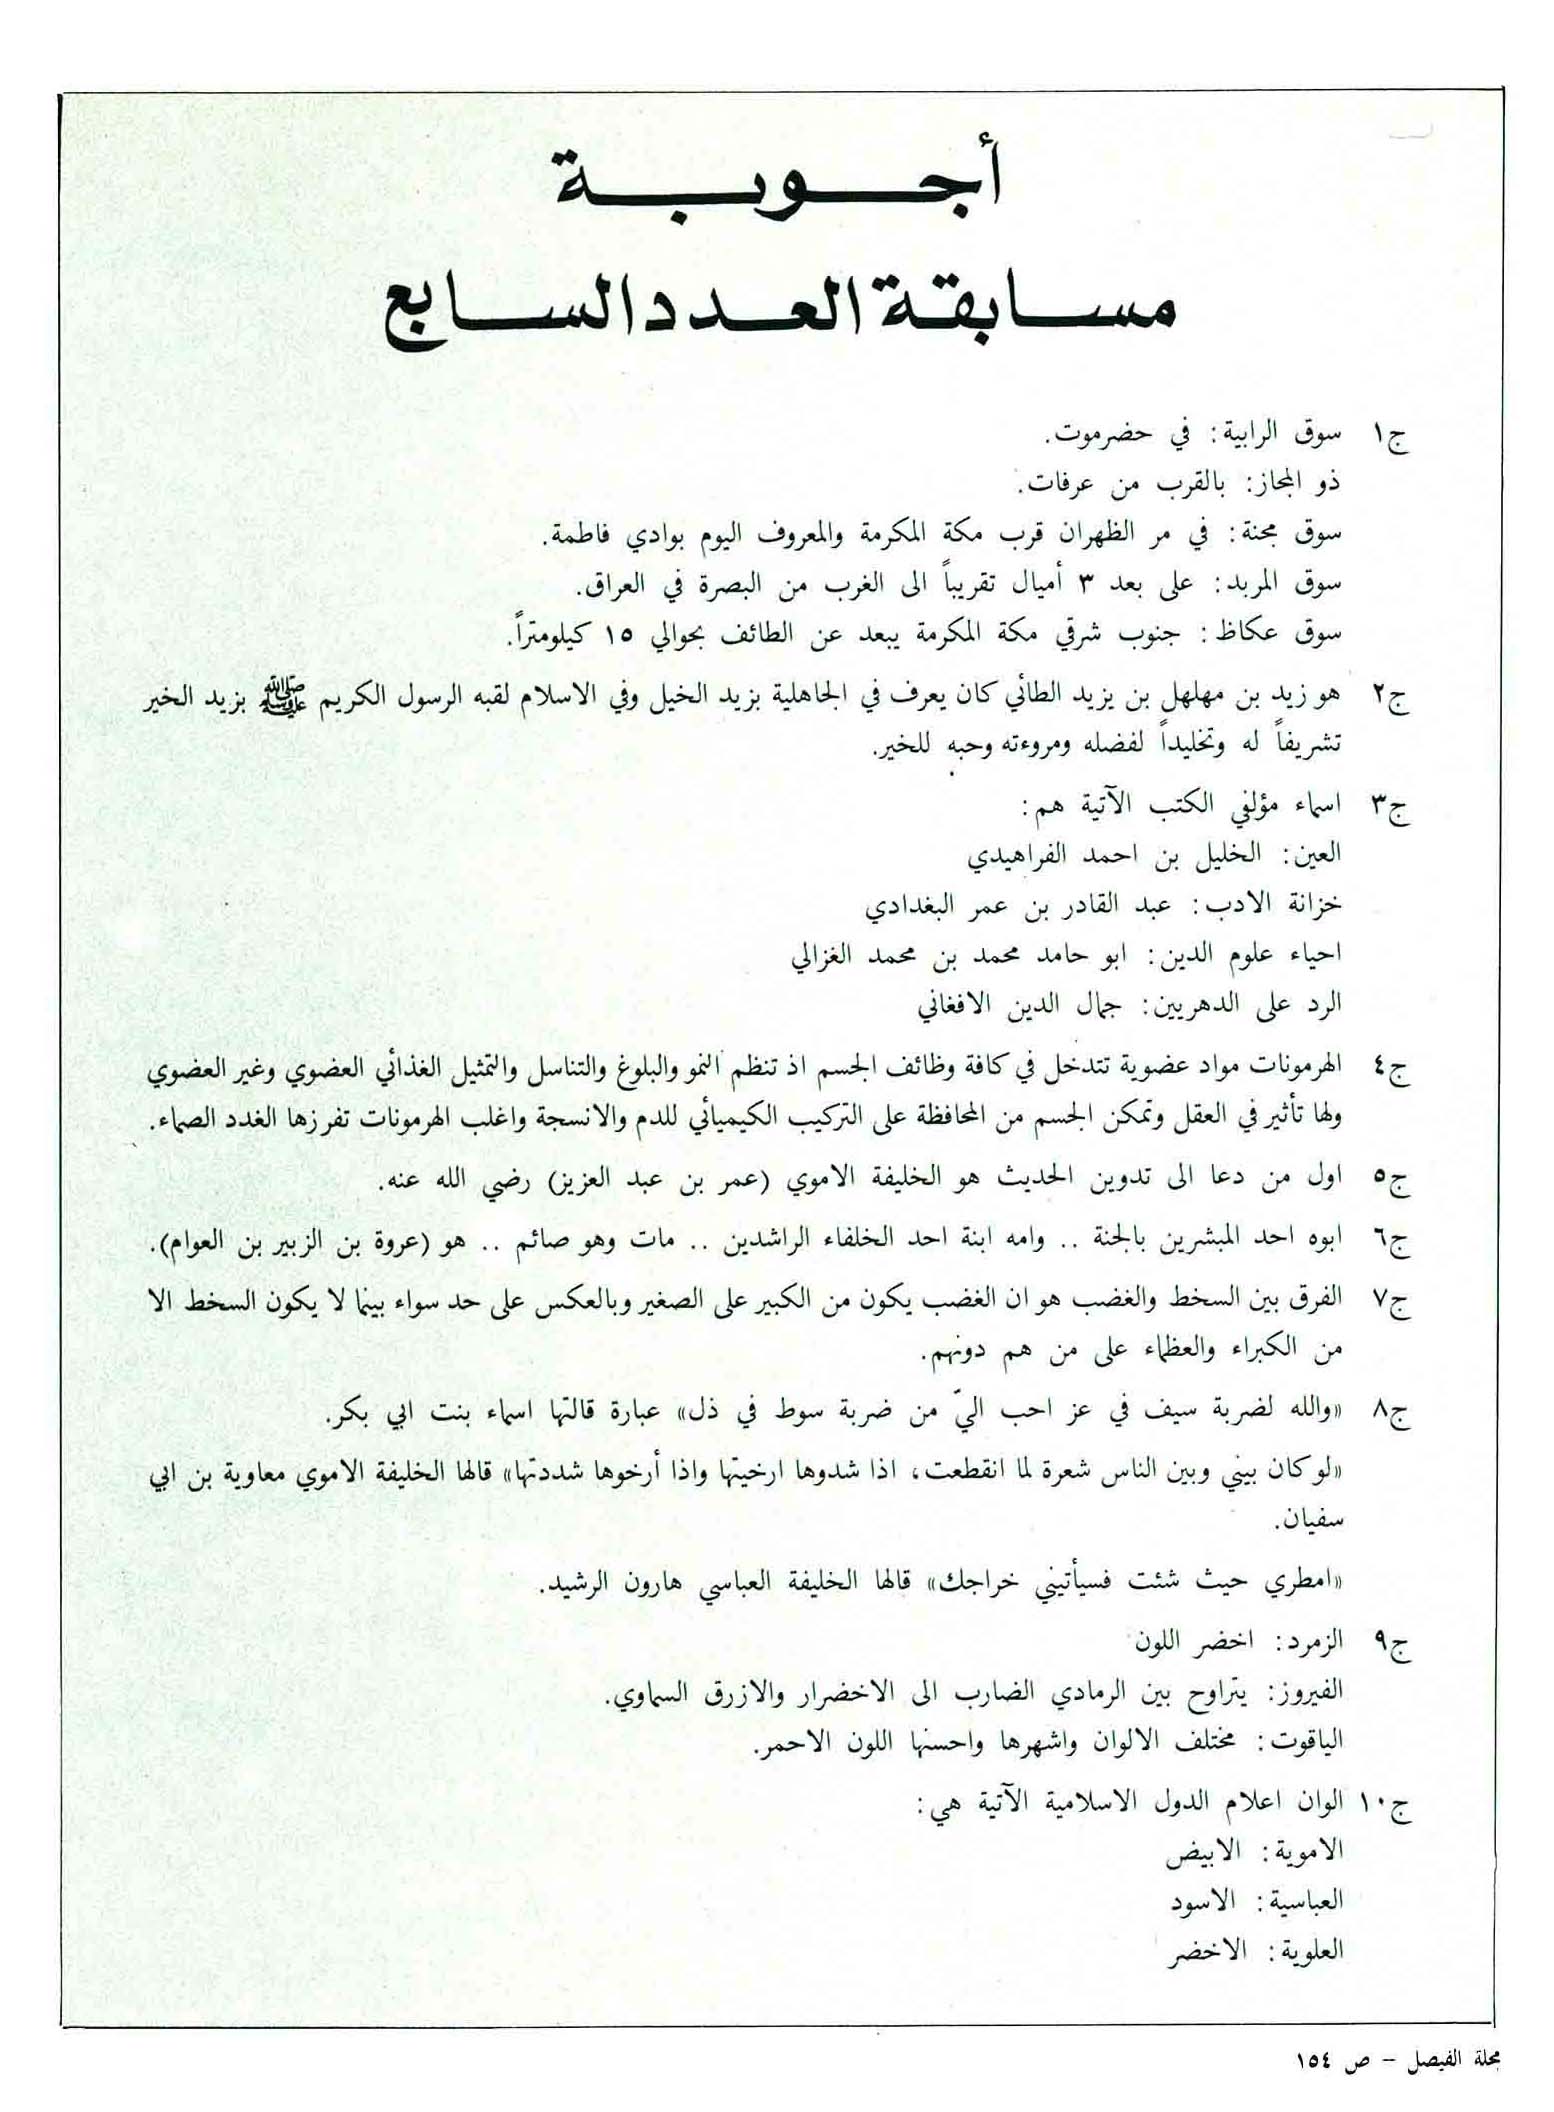 أجوبة
مسابقة العدد السابع
ج١ سوق الرابية: في حضرموت.
ذو المجاز: بالقرب من عرفات.
سوق مجنة: في مر الظهران قرب مكة المكرمة والمعروف اليوم بوادي فاطمة.
سوق المربد: على بعد ٣ أميال تقريباً الى الغرب من البصرة في العراق.
سوق عكاظ: جنوب شرقي مكة المكرمة يبعد عن الطائف بحوالي ١٥ كيلومتراً.
ج٢ هو زيد بن مهلهل بن يزيد الطائي كان يعرف في الجاهلية بزيد الخيل وفي الاسلام لقبه الرسول الكريم ﷺ بزيد الخير
تشريفاً له وتخليداً لفضله ومروءته وحبه للخير.
ج٣ اسماء مؤلفي الكتب الآتية هم:
العين: الخليل بن احمد الفراهيدي
خزانة الادب: عبد القادر بن عمر البغدادي
احياء علوم الدين: ابو حامد محمد بن محمد الغزالي
الرد على الدهريين: جمال الدين الافغاني
ج٤ الهرمونات مواد عضوية تتدخل في كافة وظائف الجسم اذ تنظم النمو والبلوغ والتناسل والتمثيل الغذائي العضوي وغير العضوي
ولها تأثير في العقل وتمكن الجسم من المحافظة على التركيب الكيميائي للدم والانسجة واغلب الهرمونات تفرزها الغدد الصماء.
ج٥ اول من دعا الى تدوين الحديث هو الخليفة الاموي (عمر بن عبد العزيز) رضي الله عنه.
ج٦ ابوه احد المبشرين بالجنة .. وامه ابنة احد الخلفاء الراشدين .. مات وهو صائم .. هو (عروة بن الزبير بن العوام).
ج٧ الفرق بين السخط والغضب هو ان الغضب يكون من الكبير على الصغير وبالعكس على حد سواء بينما لا يكون السخط الا
من الكبراء والعظماء على من هم دونهم.
ج٨ «والله لضربة سيف في عز احب اليّ من ضربة سوط في ذل» عبارة قالتها اسماء بنت ابي بكر.
«لو كان بيني وبين الناس شعرة لما انقطعت، اذا شدوها ارخيتها واذا أرخوها شددتها» قالها الخليفة الاموي معاوية بن ابي
سفيان.
«امطري حيث شئت فسيأتيني خراجك» قالها الخليفة العباسي هارون الرشيد.
ج٩ الزمرد: اخضر اللون
الفيروز: يتراوح بين الرمادي الضارب الى الاخضرار والازرق السماوي.
الياقوت: مختلف الالوان واشهرها واحسنها اللون الاحمر.
ج١٠ الوان اعلام الدول الاسلامية الآتية هي:
الاموية: الابيض
العباسية: الاسود
العلوية: الاخضر
مجلة الفيصل – ص ١٥٤